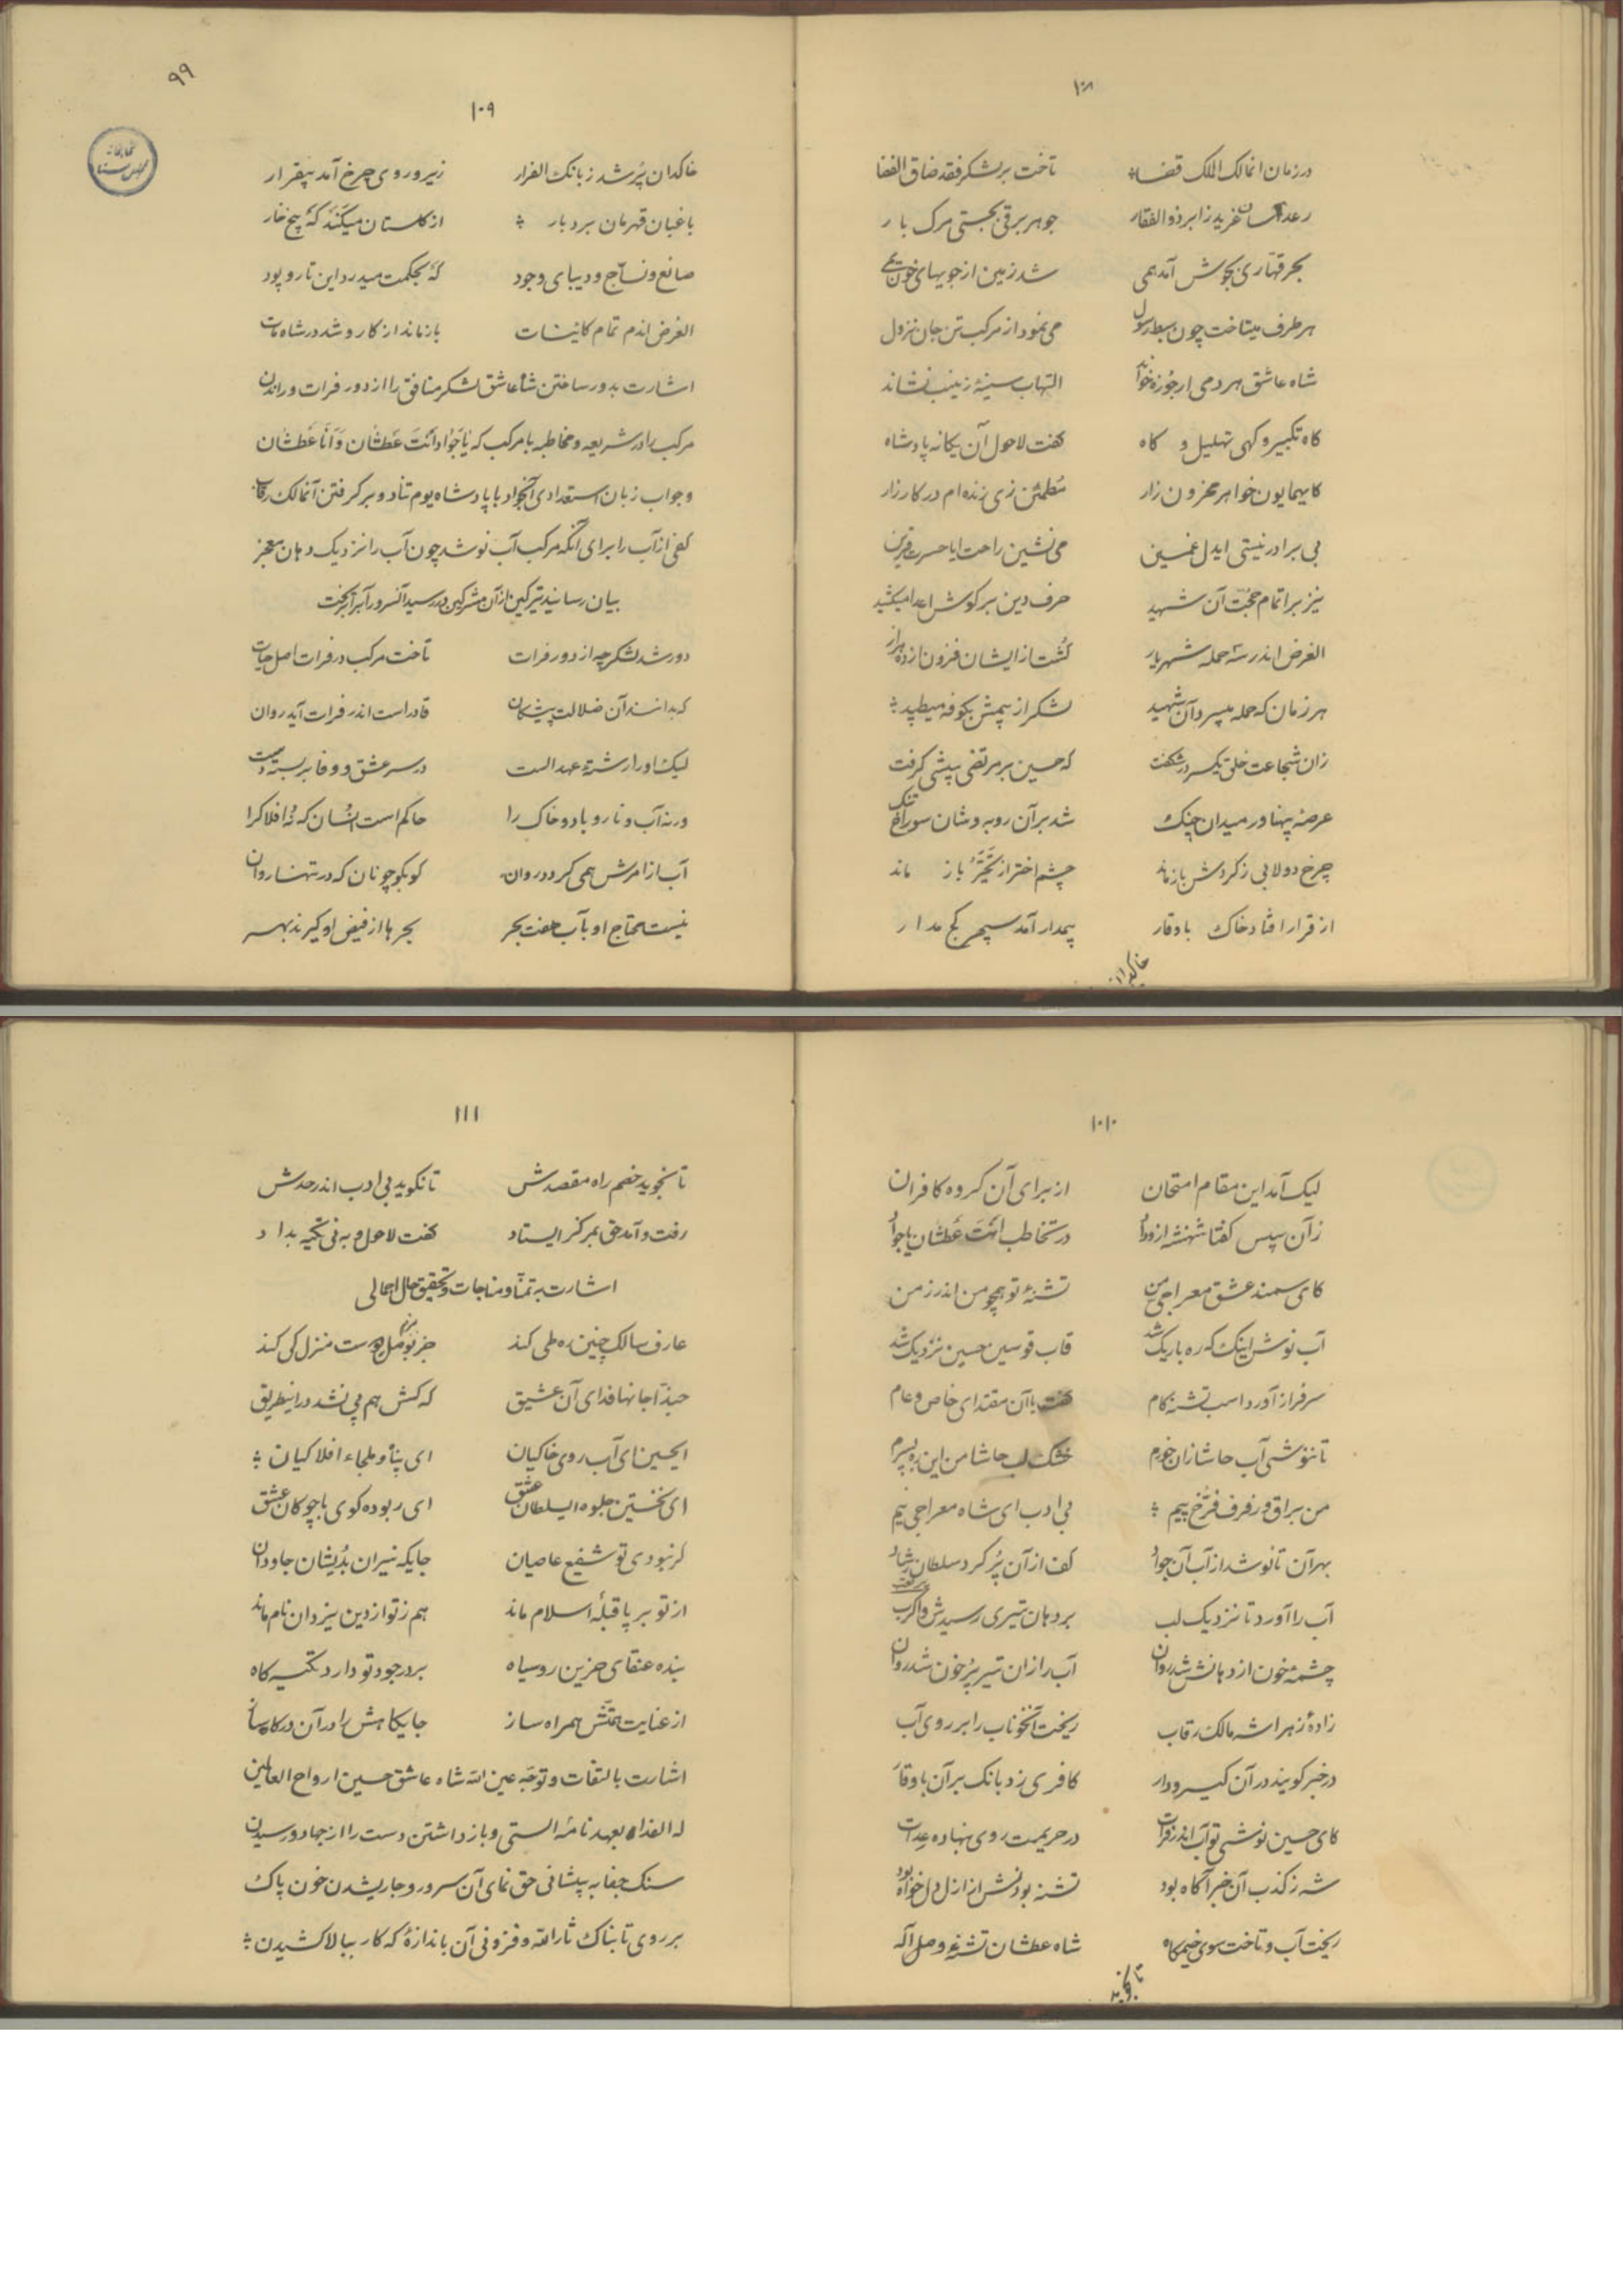 ۱۰۸
در زمان انمالک الملک قضا تاخت بر لشکر فقد ضاق الفضا
رعد آسان غرید ز ابر ذوالفقار جوهر برقی بجستی مرک بار
بحر قهّاری بجوش آمد همی شد زمین از جویهای خون یمی
هر طرف میتاخت چون سبط رسول می نمود از مرکب تن جان نزول
شاه عاشق هر دمی ارجُوزه خواند التهاب سینهٔ زینب نشاند
کاه تکبیر و کهی تهلیل و کاه کفت لاحول آن یکانه پادشاه
کایهمایون خواهر محزون زار مُطمئن زی زنده‌ام در کارزار
بی برادر نیستی ایدل غمین می نشین راحت ایا حسرت قرین
نیز بر اتمام حجّت آن شهید حرف دین بر کوش اعدا میکشید
الغرض اندر سه حمله شهریار کُشت از ایشان فزون از ده هزار
هر زمان که حمله میبرد آن شهید لشکر از بیمش بکوفه میطپید
زان شجاعت خلق یکسر در شکفت که حسین بر مرتضی پیشی کرفت
عرصهٔ پهناور میدان جنک شد بر آن روبه وشان سوراخ تنک
چرخ دولابی ز کردش باز ماند چشم اختر از تَحَیُّر باز ماند
از قرار افتاد خاک باوقار بیمدار آمد سپهر کج مدار
خاکدان
۹۹
۱۰۹
خاکدان پُر شد ز بانک الفرار زیر و روی چرخ آمد بیقرار
باغبان قهرمان بردبار از کلستان میکَند که بیخ خار
صانع و نسّاج و دیبای وجود که بحکمت میدرد این تار و پود
الغرض اندم تمام کاینات بازماند از کار و شد در شاه مات
اشارت بدور ساختن شاه عاشق لشکر منافق را از دور فرات و راندن
مرکب را در شریعه و مخاطبه با مرکب که یا جَواد اَنتَ عَطشان وَ اَنَا عَطشان
و جواب زبان استعدادی آنجواد با پادشاه یوم تناد و بر کرفتن آنمالک رقاب
کفی از آب را برای آنکه مرکب آب نوشد چون آب را نزدیک دهان معجز
بیان رسانید تیر کین از آن مشرکین در رسید آنسرور آبرا بریخت
دور شد لشکر چه از دور فرات تاخت مرکب در فرات اصل حیات
که بدانند آن ضلالت پیشکان قادر است اندر فرات آید روان
لیک او را رشتهٔ عهد الست در سر عشق و وفا بر بسته دست
ورنه آب و نار و باد و خاک را حاکم است انسان که نُه افلاکرا
آب از امرش همی کردد روان کو بکو چونان که در تنها روان
نیست محتاج او بآب هفت بحر بحرها از فیض او کیرند بهر
۱۱۰
لیک آمد این مقام امتحان از برای آن کروه کافران
زآن سپس کفتا شهنشه از وداد در تخاطب اَنتَ عَطشان یا جواد
کای سمند عشق معراجی من تشنهٔ تو همچو من اندر زمن
آب نوش اینک که ره باریک شد قاب قوسین حسین نزدیک شد
سرفراز آورد اسب تشنه کام کفت با آن مقتدای خاص و عام
تا ننوشی آب حاشا زان خورم خشک لب حاشا من این ره بسپرم
من براق و رفرف فرّخ پیم بی ادب ای شاه معراجی نیم
بهر آن تا نوشد از آب آن جواد کف از آن پُر کرد سلطان رشاد
آب را آورد تا نزدیک لب بر دهان تیری رسیدش واکرب
چشمهٔ خون از دهانش شد روان آب را زان تیر پُر خون شد روان
زادهٔ زهرا شه مالک رقاب ریخت آنخوناب را بر روی آب
در خبر کویند در آن کیر و دار کافری زد بانک بر آن باوقار
کای حسین نوشی تو آب اندر فرات در حریمت روی بنهاده عدات
شه ز کذب آن خبر آکاه بود تشنه بودنش از ازل دلخواه بود
ریخت آب و تاخت سوی خیمکاه شاه عطشان تشنهٔ وصل اله
تا نجوید
۱۱۱
تا نجوید خصم راه مقصدش تا نکوید بی ادب اندر حدش
رفت و آمد حق بمرکز ایستاد کفت لاحول و به نی تکیه بداد
اشارت به تمنّا و مناجات و تحقیق حال اجمالی
عارف سالک چنین ره طی کند جز بوصل دوست منزل کی کند
حبّذا جانها فدای آن عشیق که کسش هم پی نشد در اینطریق
ایحسین ای آب روی خاکیان ای پناه و ملجاء افلاکیان
ای نخستین جلوهٔ سلطان عشق ای ربوده کوی با چوکان عشق
کر نبودی تو شفیع عاصیان جایکه نیران بُدیشان جاودان
از تو برپا قبلهٔ اسلام ماند هم ز تو از دین یزدان نام ماند
بنده عنقای حزین روسیاه بر در جود تو دارد تکیه کاه
از عنایت همّتش همراه ساز جایکاهش را در آن درکاه ساز
اشارت بالتفات و توجّه عین الله شاه عاشق حسین ارواح العالمین
له الفداء بعهد نامهٔ الستی و باز داشتن دست را از جهاد و رسیدن
سنک جفا به پیشانی حق نمای آن سرور و جاریشدن خون پاک
بر روی تابناک ثارالله و فزونی آن باندازهٔ که کار ببالا کشیدن